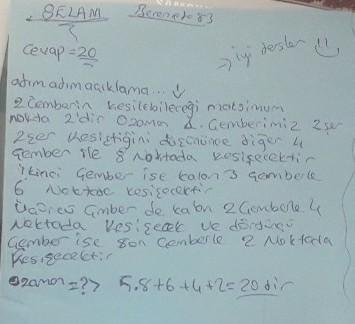 SELAM Bereneto83
Cevap=20
→ iyi dersler
adım adım açıklama...
2 Çemberin kesilebileceği maksimum
nokta 2'dir Ozaman 1. Çemberimiz 2şer
2şer kesiştiğini düşününce diğer 4
Çember ile 8 Noktada kesişecektir
İkinci Çember ise kalan 3 Çemberle
6 Noktada kesişecektir
Üçüncü Çmber de kalan 2 Çemberle 4
Noktada Kesişecek ve dördüncü
Çember ise son Çemberle 2 Noktada
Kesişecektir
Ozaman =?> 8+6+4+2=20 dir